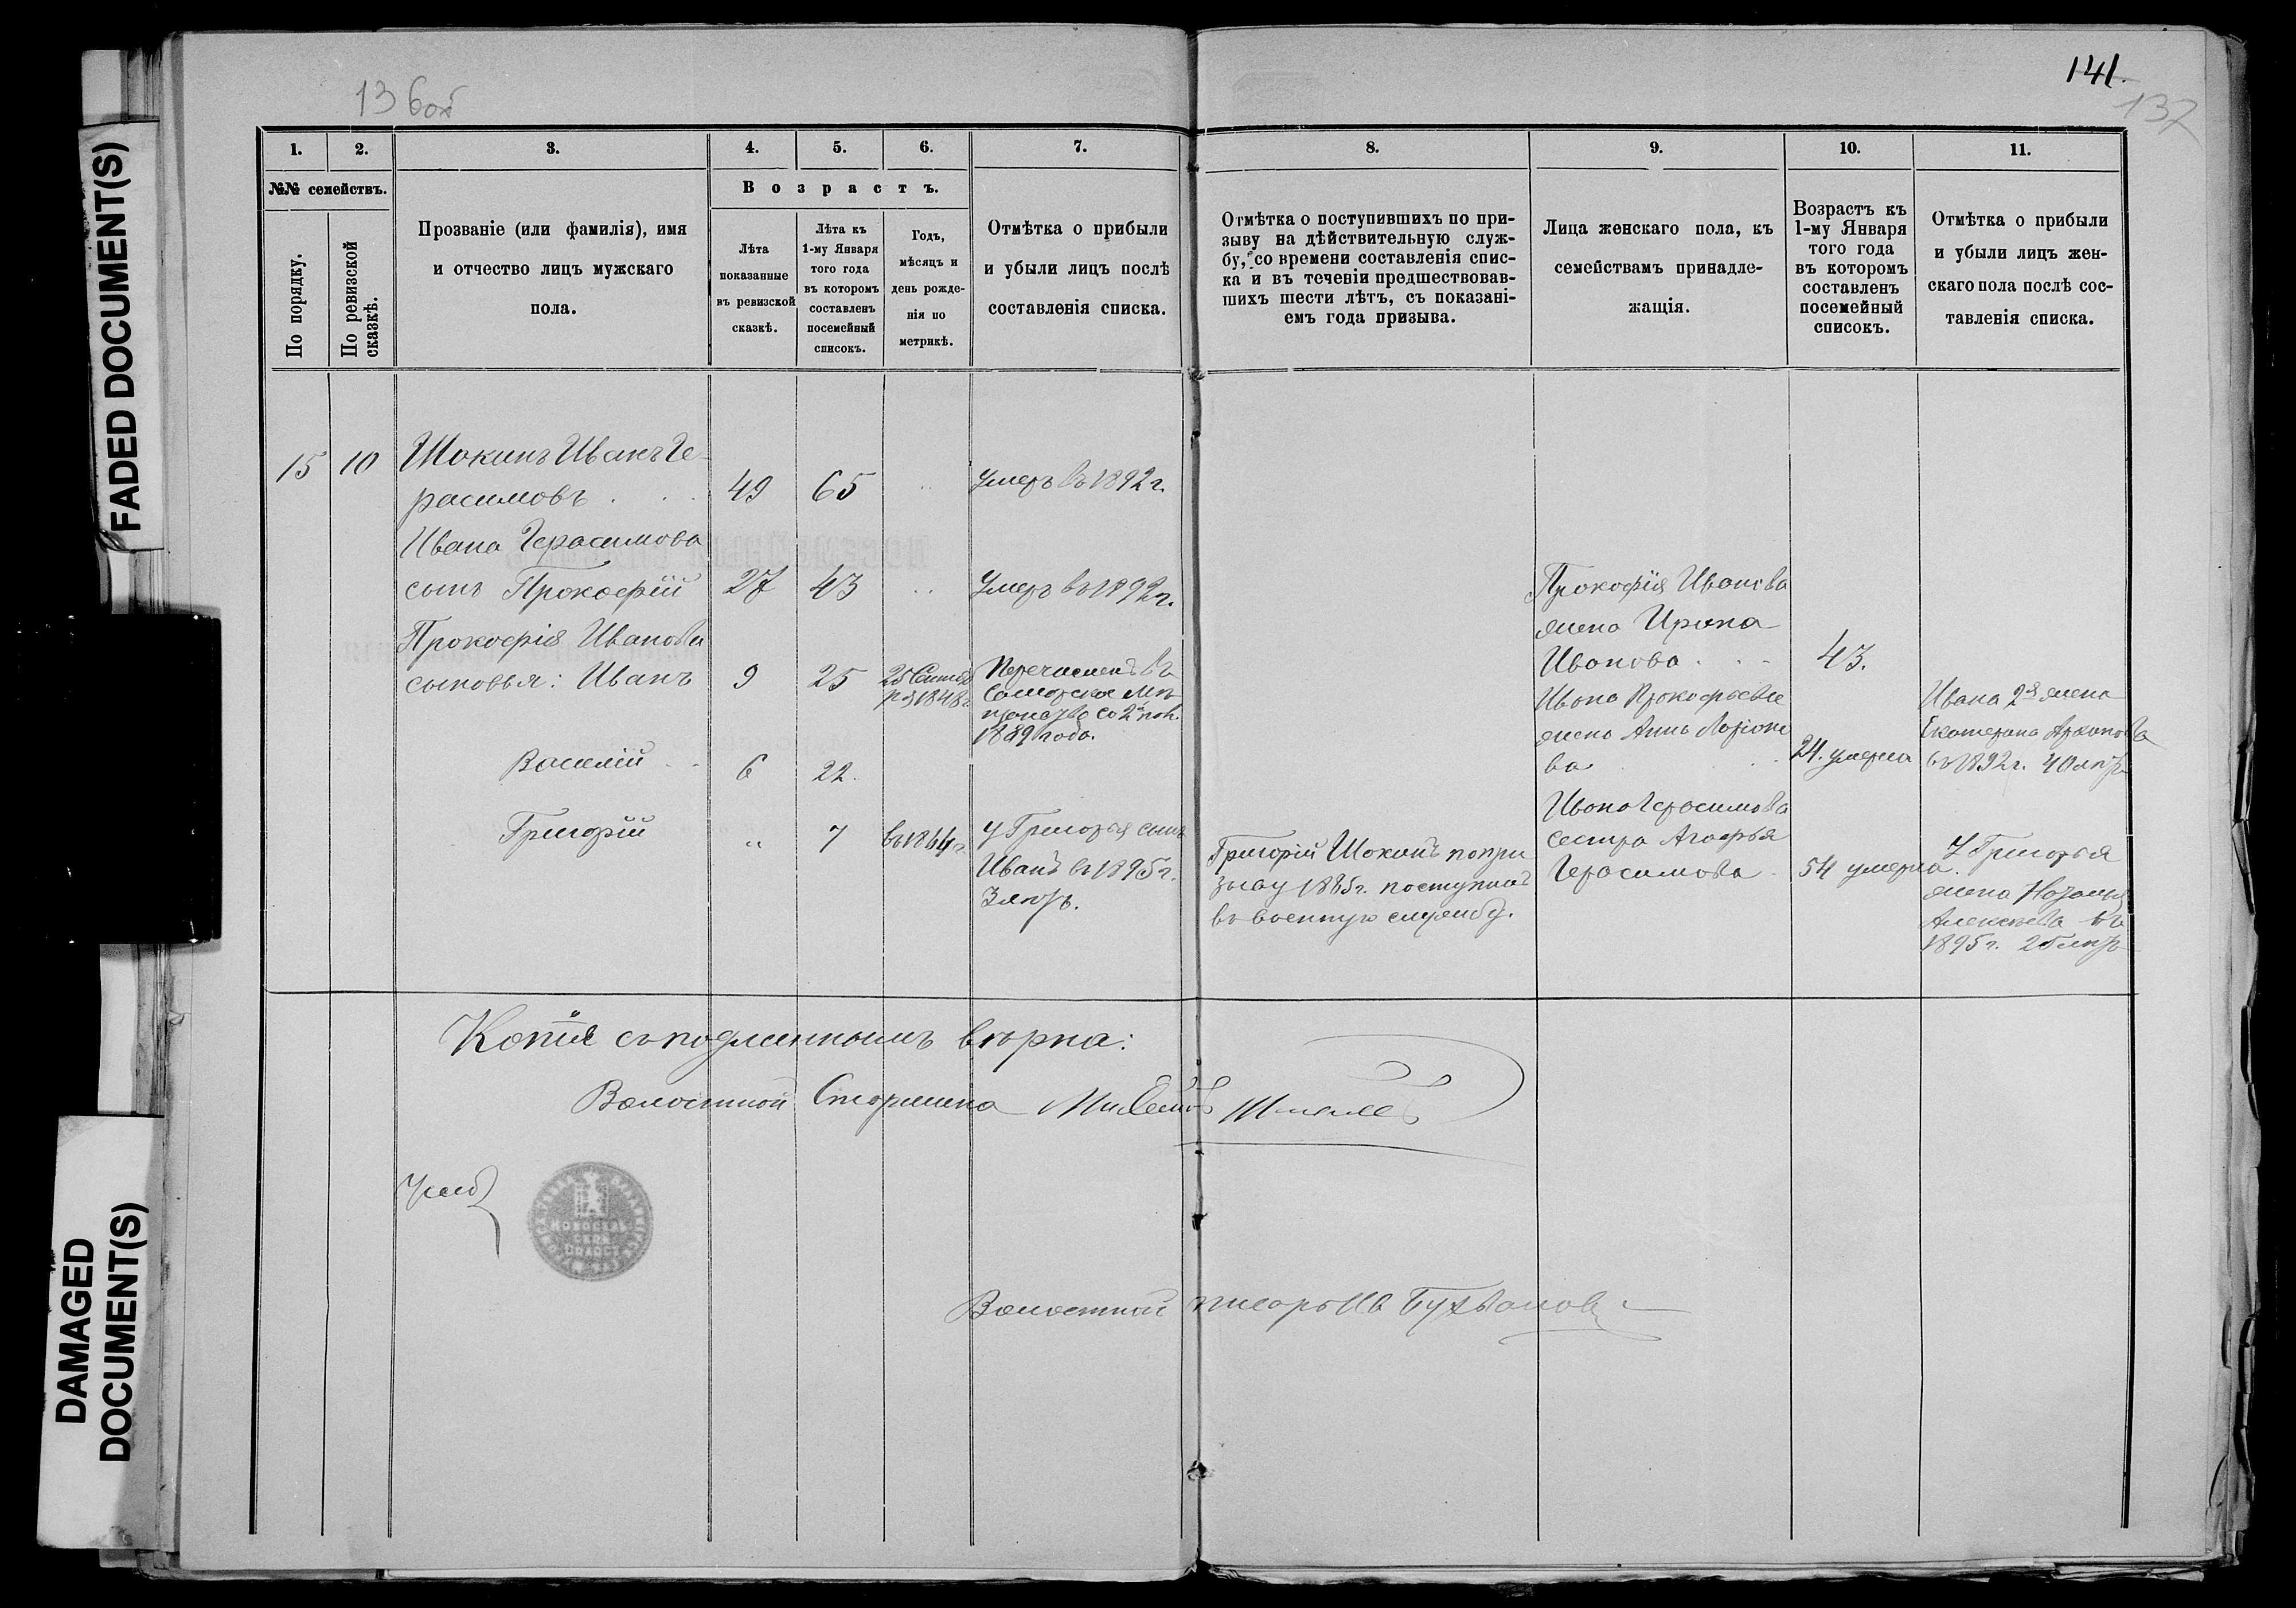 FADED DOCUMENT(S)
DAMAGED
DOCUMENT(S)
136 об
141.
137
1. 2. 3. 4. 5. 6. 7. 8. 9. 10. 11.
№№ семействъ.
По порядку.
По ревизской
сказкѣ.
Прозваніе (или фамилія), имя
и отчество лицъ мужскаго
пола.
Возрастъ.
Лѣта
показанные
въ ревизской
сказкѣ.
Лѣта къ
1-му Января
того года
въ которомъ
составленъ
посемейный
списокъ.
Годъ,
мѣсяцъ и
день рожде-
нія по
метрикѣ.
Отмѣтка о прибыли
и убыли лицъ послѣ
составленія списка.
Отмѣтка о поступившихъ по при-
зыву на дѣйствительную служ-
бу, со времени составленія спис-
ка и въ теченіи предшествовав-
шихъ шести лѣтъ, съ показані-
емъ года призыва.
Лица женскаго пола, къ
семействамъ принадле-
жащія.
Возрастъ къ
1-му Января
того года
въ которомъ
составленъ
посемейный
списокъ.
Отмѣтка о прибыли
и убыли лицъ жен-
скаго пола послѣ сос-
тавленія списка.
15 10 Шокинъ Иванъ Ге-
расимовъ 49 65 Умеръ въ 1892 г.
Ивана Герасимова
сынъ Прокофій 27 43 Умеръ въ 1892 г.
Прокофія Иванова
сыновья: Иванъ 9 25
25 Сентяб
ря 1848 г.
Перечисленъ въ
Самарское Мѣ-
щанство со 2й пол.
1889 года.
Василій 6 22.
Григорій „ 7 въ 1864 г.
У Григорья сынъ
Иванъ въ 1895 г.
3 лѣтъ.
Григорій Шокинъ по при
зыву 1885 г. поступилъ
въ военную службу.
Прокофія Иванова
жена Ирина
Иванова 43.
Ивана Прокофьева
жена Анна Ларіоно
ва 24. умерла
Ивана Герасимова
сестра Агафья
Герасимова 54 умерла.
Ивана 2я жена
Екатерина
въ 1892 г. 40 лѣтъ
У Григорья
жена Наталья
Алексѣева въ
1895 г. 25 лѣтъ
Копія съ подлиннымъ вѣрна:
Волостной Старшина
Волостной писарь Ив